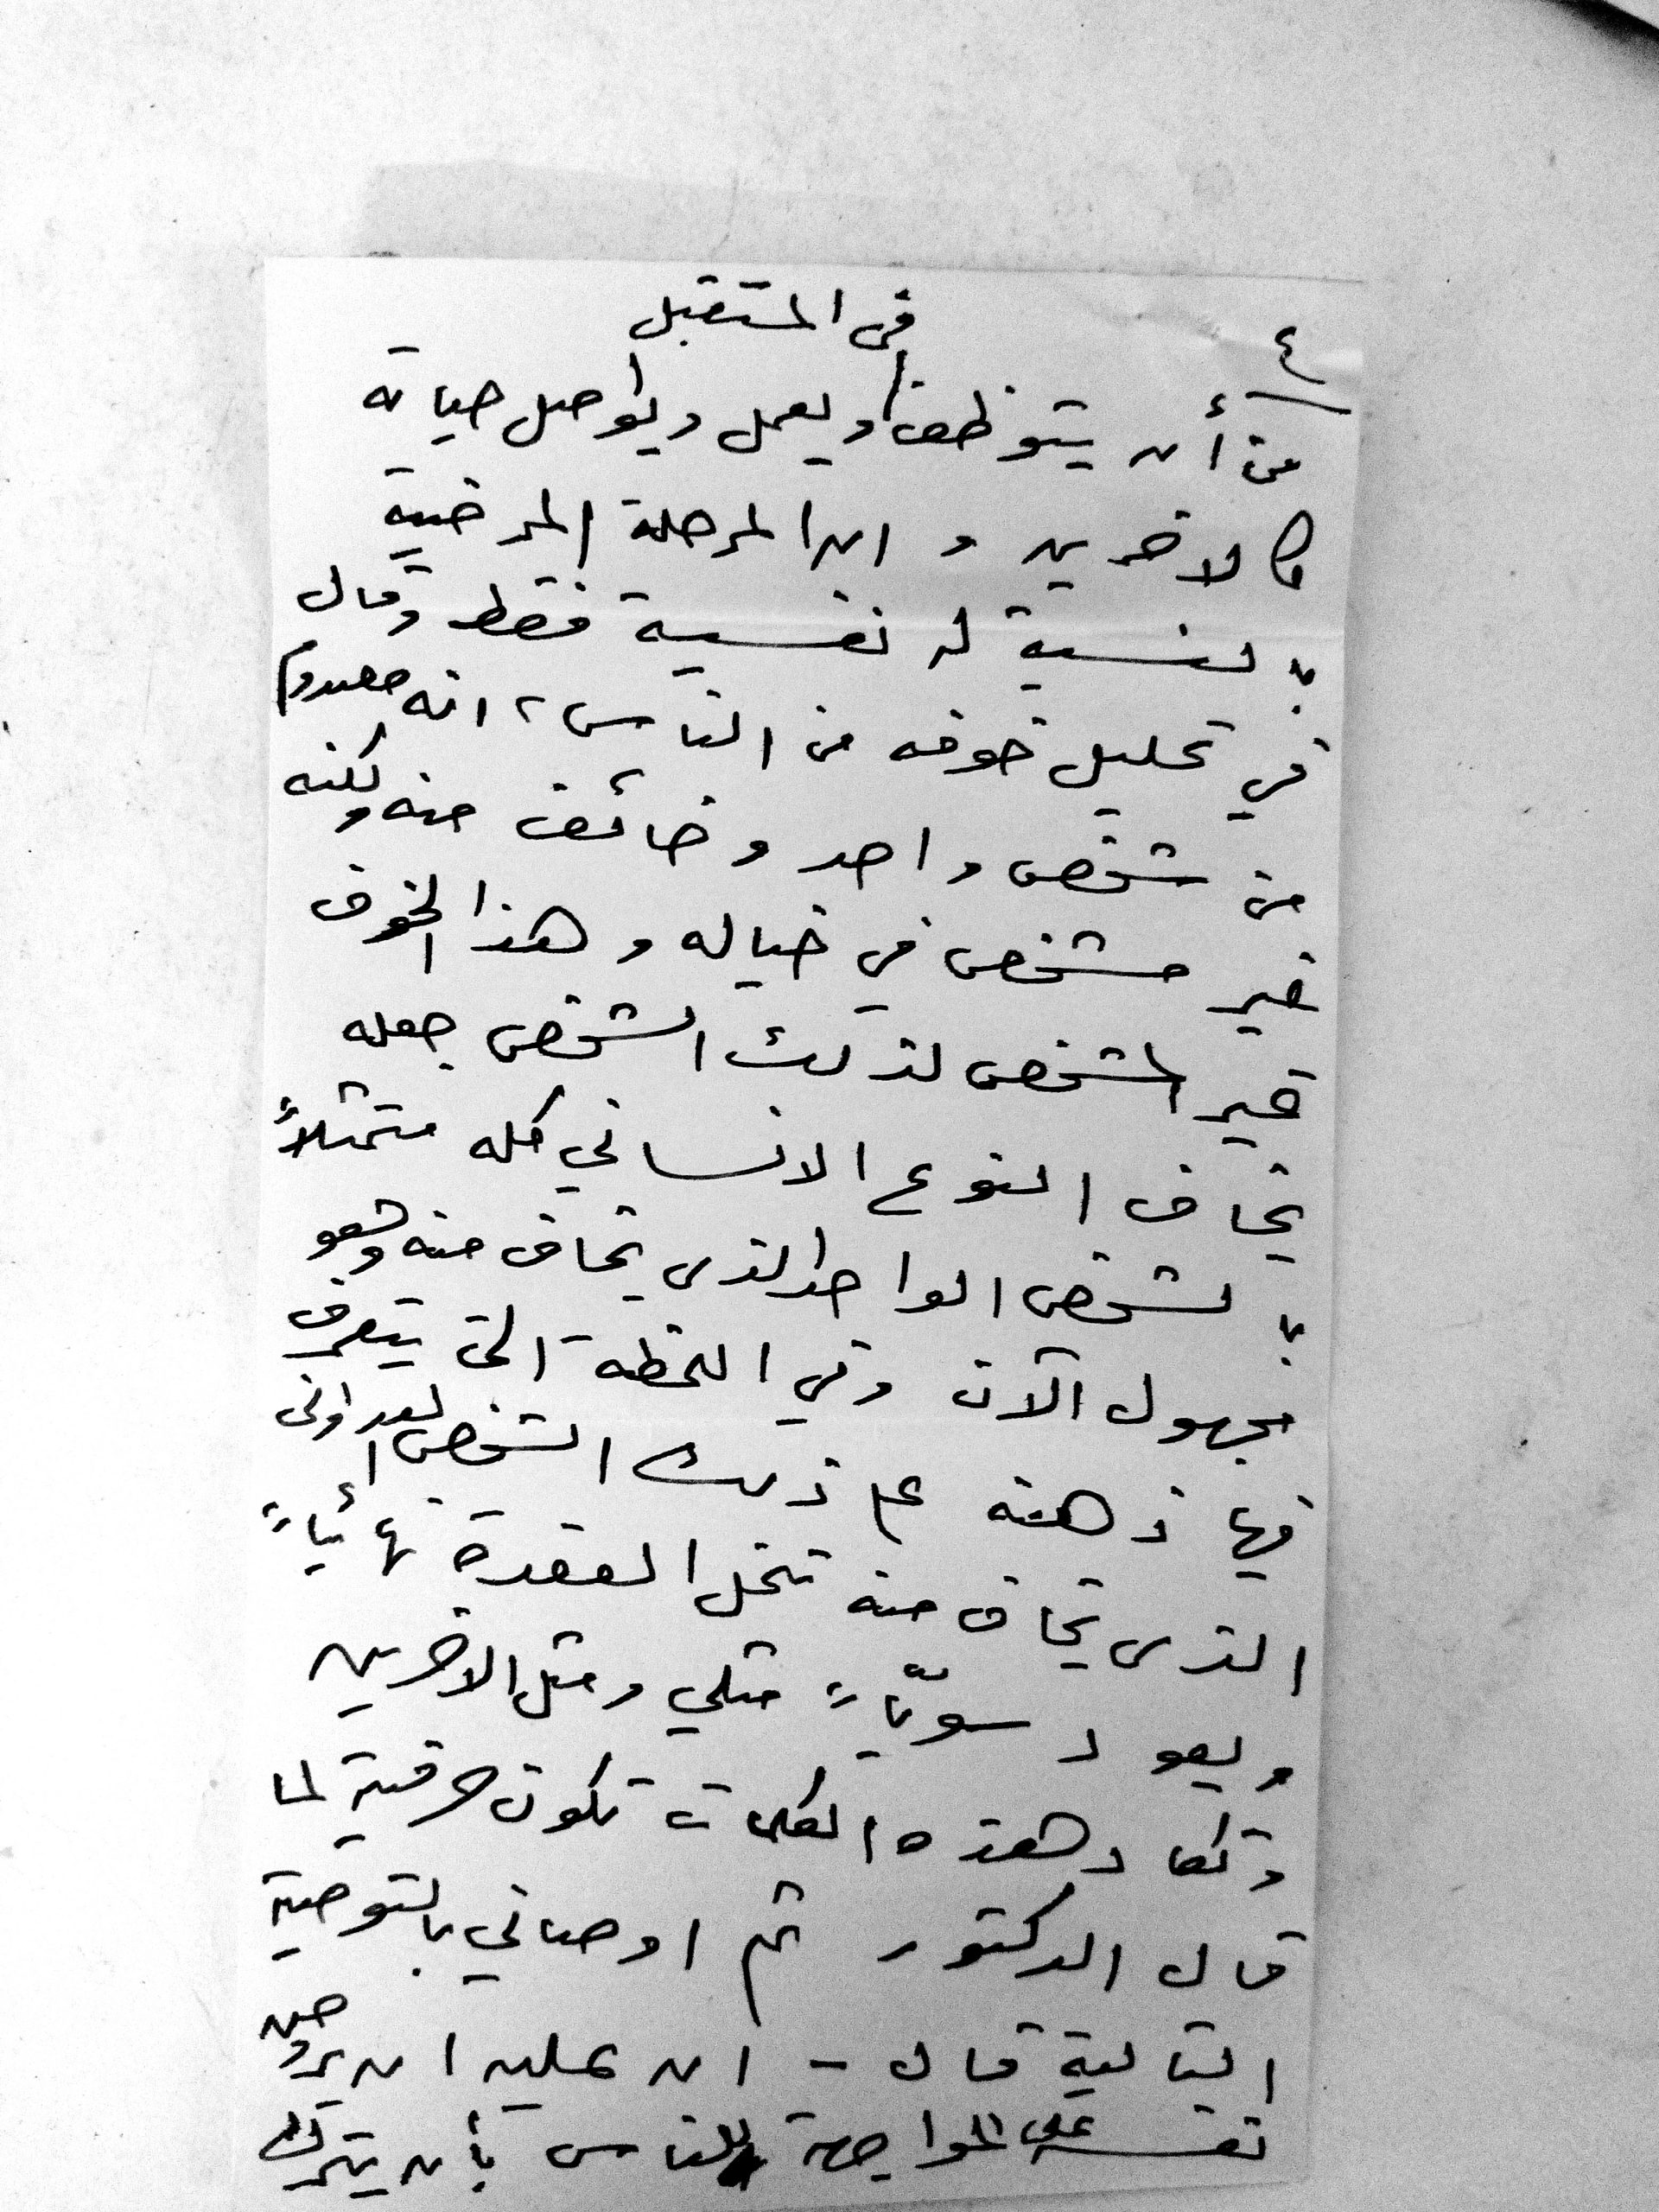 ٤
في المستقبل
من أن يتوظف ويعمل ويواصل حياته
كالاخرين و ان المرحلة المرضية
بالنسبة له نفسية فقط وقال
في تحليل خوفه من الناس، انه
من شخص واحد وخائف منه ولكنه
غير مشخص في خياله وهذا الخوف
غير المشخص لذلك الشخص جعله
يخاف النوع الانساني كله متمثلاً
بالشخص الواحد الذي يخاف منه وهو
مجهول الآن وفي اللحظة التي يتعرف
فيها ذهنه على ذلك الشخص العدواني
الذي يخاف منه تنحل العقدة نهائياً
ويعود سويّاً مثلي ومثل الاخرين
وتكاد هذه الكلمات تكون حرفية لما
قال الدكتور ثم اوصاني بالتوصية
التالية قال - ان عليه ان يروض
نفسه على المواجهة للناس بأن يترك